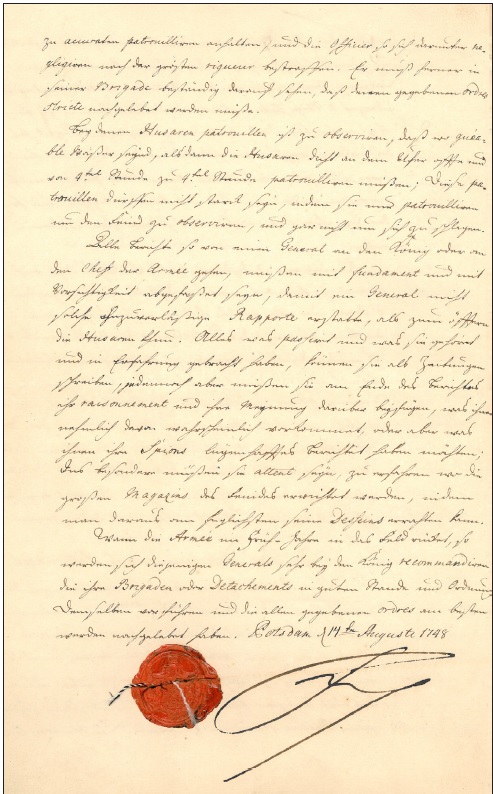 zu accuraten patrouilliren anhalten, und die Officier so sich darunter ne-
gligiren nach der grösten rigueur bestraffen. Er muß ferner in
seiner Brigade beständig darauf sehen, daß denen gegebenen Ordres
stricte nachgelebet werden müße.
Bey denen Husaren patrouillen ist zu observiren, daß wo guéa-
ble Wäßer seynd, alsdann die Husaren dicht an dem Ufer und
von 4tel Stunde zu 4tel Stunde patrouilliren müßen; Diese pa-
trouillen dürffen nicht starck seyn, indem sie nur patrouilliren
um den Feind zu observiren, und gar nicht um sich zu schlagen.
Alle Berichte so von einem General an den König oder an
den Chef der Armée gehen, müßen mit fundament und mit
Vorsichtigkeit abgefaßet seyn, damit ein General nicht
solche ohnzuverläßige Rapporte erstatte, als zum öfftern
die Husaren thun. Alles was passirt und was sie gehöret
und in Erfahrung gebracht haben, können sie als Zeitungen
schreiben, jedennoch aber müßen sie am Ende des Berichtes
ihr raisonnement und ihre Meynung darüber beyfügen, was ihnen
nehmlich davon wahrscheinlich vorkommet, oder aber was
ihnen ihre Spions lügenhafftes berichtet haben möchten;
Ins besondere müßen sie attent seyn, zu erfahren wo die
großen Magazins des Feindes errichtet werden, indem
man daraus am füglichsten seine Desseins errathen kann.
Wann die Armée im Früh-Jahre in das Feld rücket, so
werden sich diejenigen Generals sehr bey den König recommandiren
die ihre Brigaden oder Detachements in gutem Stande und Ordnung
demselben vorführen und die allen gegebenen ordres am besten
werden nachgelebet haben. Potsdam d 14ten Auguste 1748